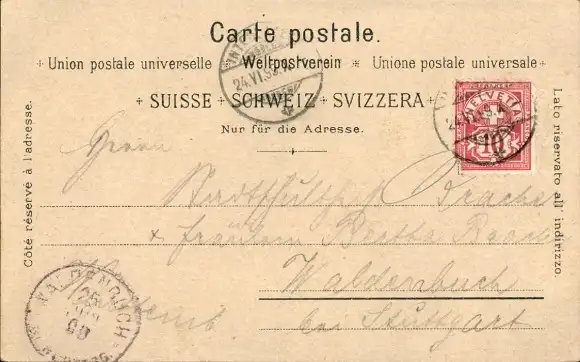 Carte postale.
Union postale universelle Weltpostverein Unione postale universale
SUISSE SCHWEIZ SVIZZERA
Nur für die Adresse.
Côté réservé à l'adresse.
Lato riservato all' indirizzo.
HELVETIA
10
24.VI.9
24.VI.9
Herrn
Stadtschulth
& Fräulein Bertha
Waldenbuch
bei Stuttgart
WALDENBUCH